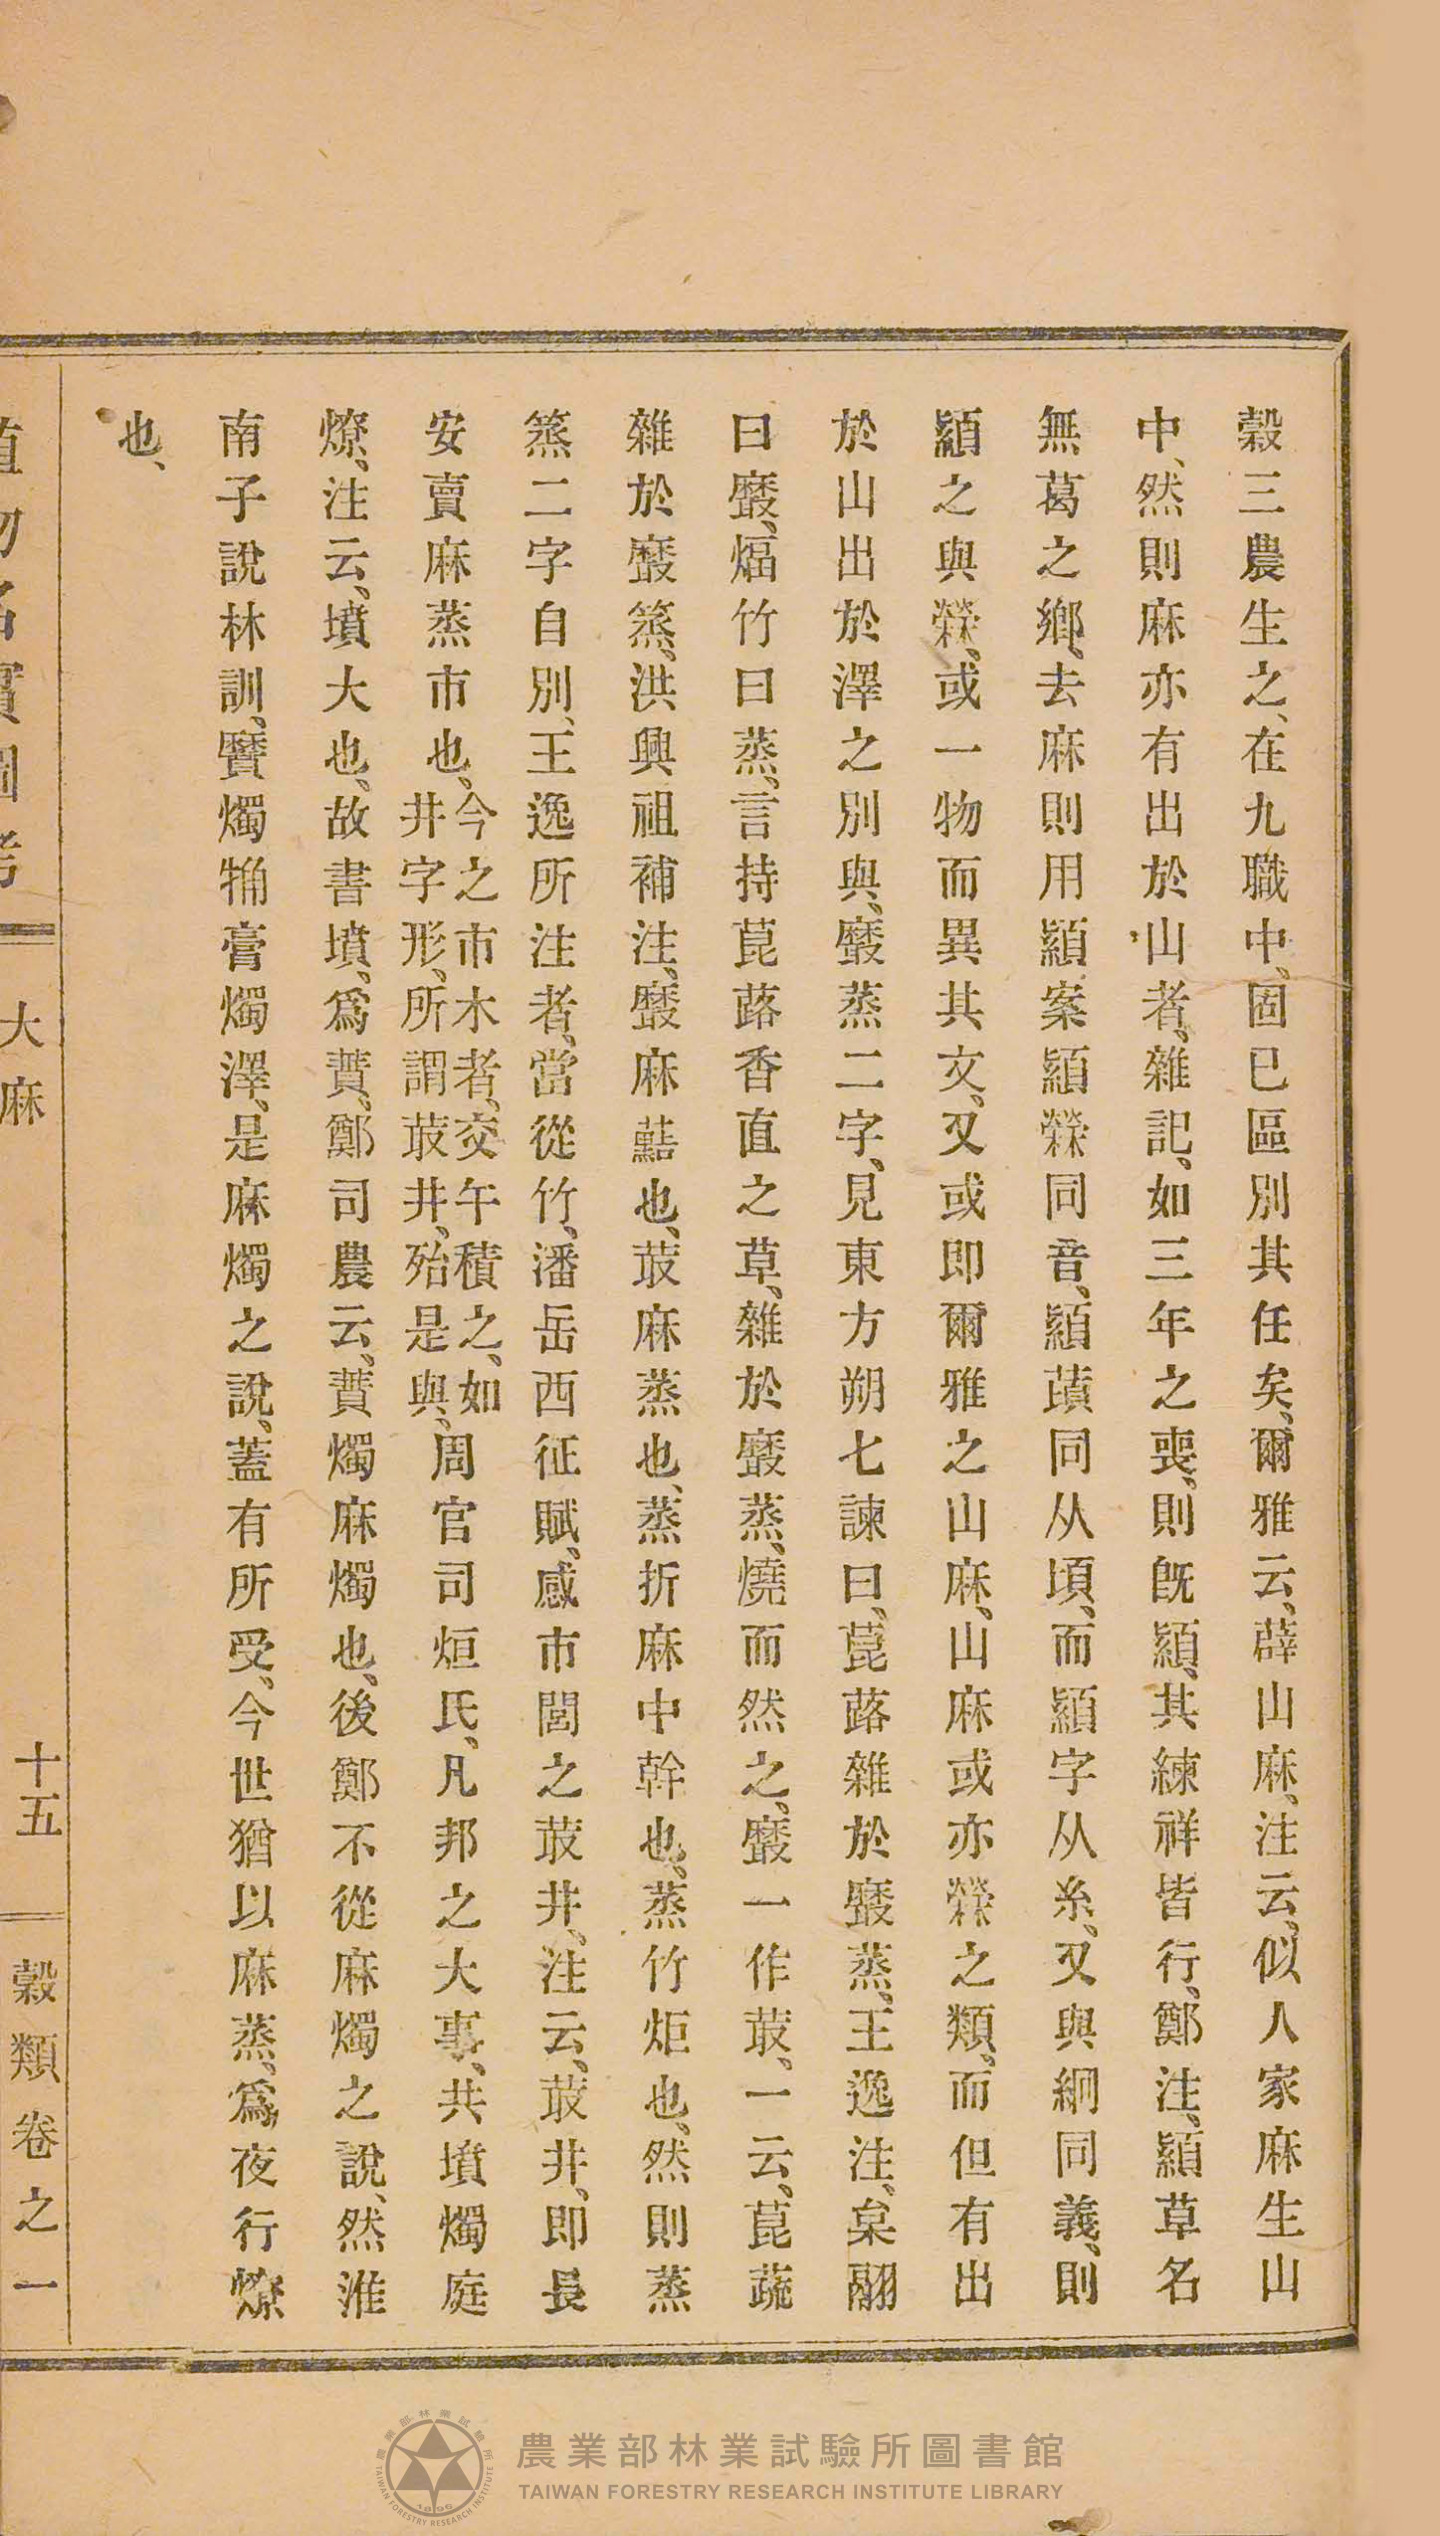 穀三農生之、在九職中、固已區別其任矣、爾雅云、薜山麻、注云、似人家麻生山
中、然則麻亦有出於山者、雜記、如三年之喪、則旣顈、其練祥皆行、鄭注、顈草名
無葛之鄉、去麻則用顈案顈檾同音、顈䔛同从頃、而顈字从糸、又與絅同義、則
顈之與檾、或一物而異其文、又或即爾雅之山麻、山麻或亦檾之類、而但有出
於山出於澤之別與、黀蒸二字、見東方朔七諫曰、菎蕗雜於黀蒸、王逸注、枲翮
曰黀、煏竹曰蒸、言持菎蕗香直之草、雜於黀蒸、燒而然之、黀一作菆、一云、菎蕗
雜於黀蒸、洪興祖補注、黀麻䕸也、菆麻蒸也、蒸折麻中幹也、蒸竹炬也、然則蒸
蒸二字自別、王逸所注者、當從竹、潘岳西征賦、感市閭之菆井、注云、菆井、即長
安賣麻蒸市也、今之市木者、交午積之、如井字形、所謂菆井、殆是與、周官司烜氏、凡邦之大事、共墳燭庭
燎、注云、墳大也、故書墳、爲蕡、鄭司農云、蕡燭麻燭也、後鄭不從麻燭之說、然淮
南子說林訓、黂燭捔膏燭澤、是麻燭之說、蓋有所受、今世猶以麻蒸、爲夜行燎
也、
植物名實圖考 大麻 十五 穀類卷之一
農業部林業試驗所圖書館
TAIWAN FORESTRY RESEARCH INSTITUTE LIBRARY
農業部林業試驗所
TAIWAN FORESTRY RESEARCH INSTITUTE
1895